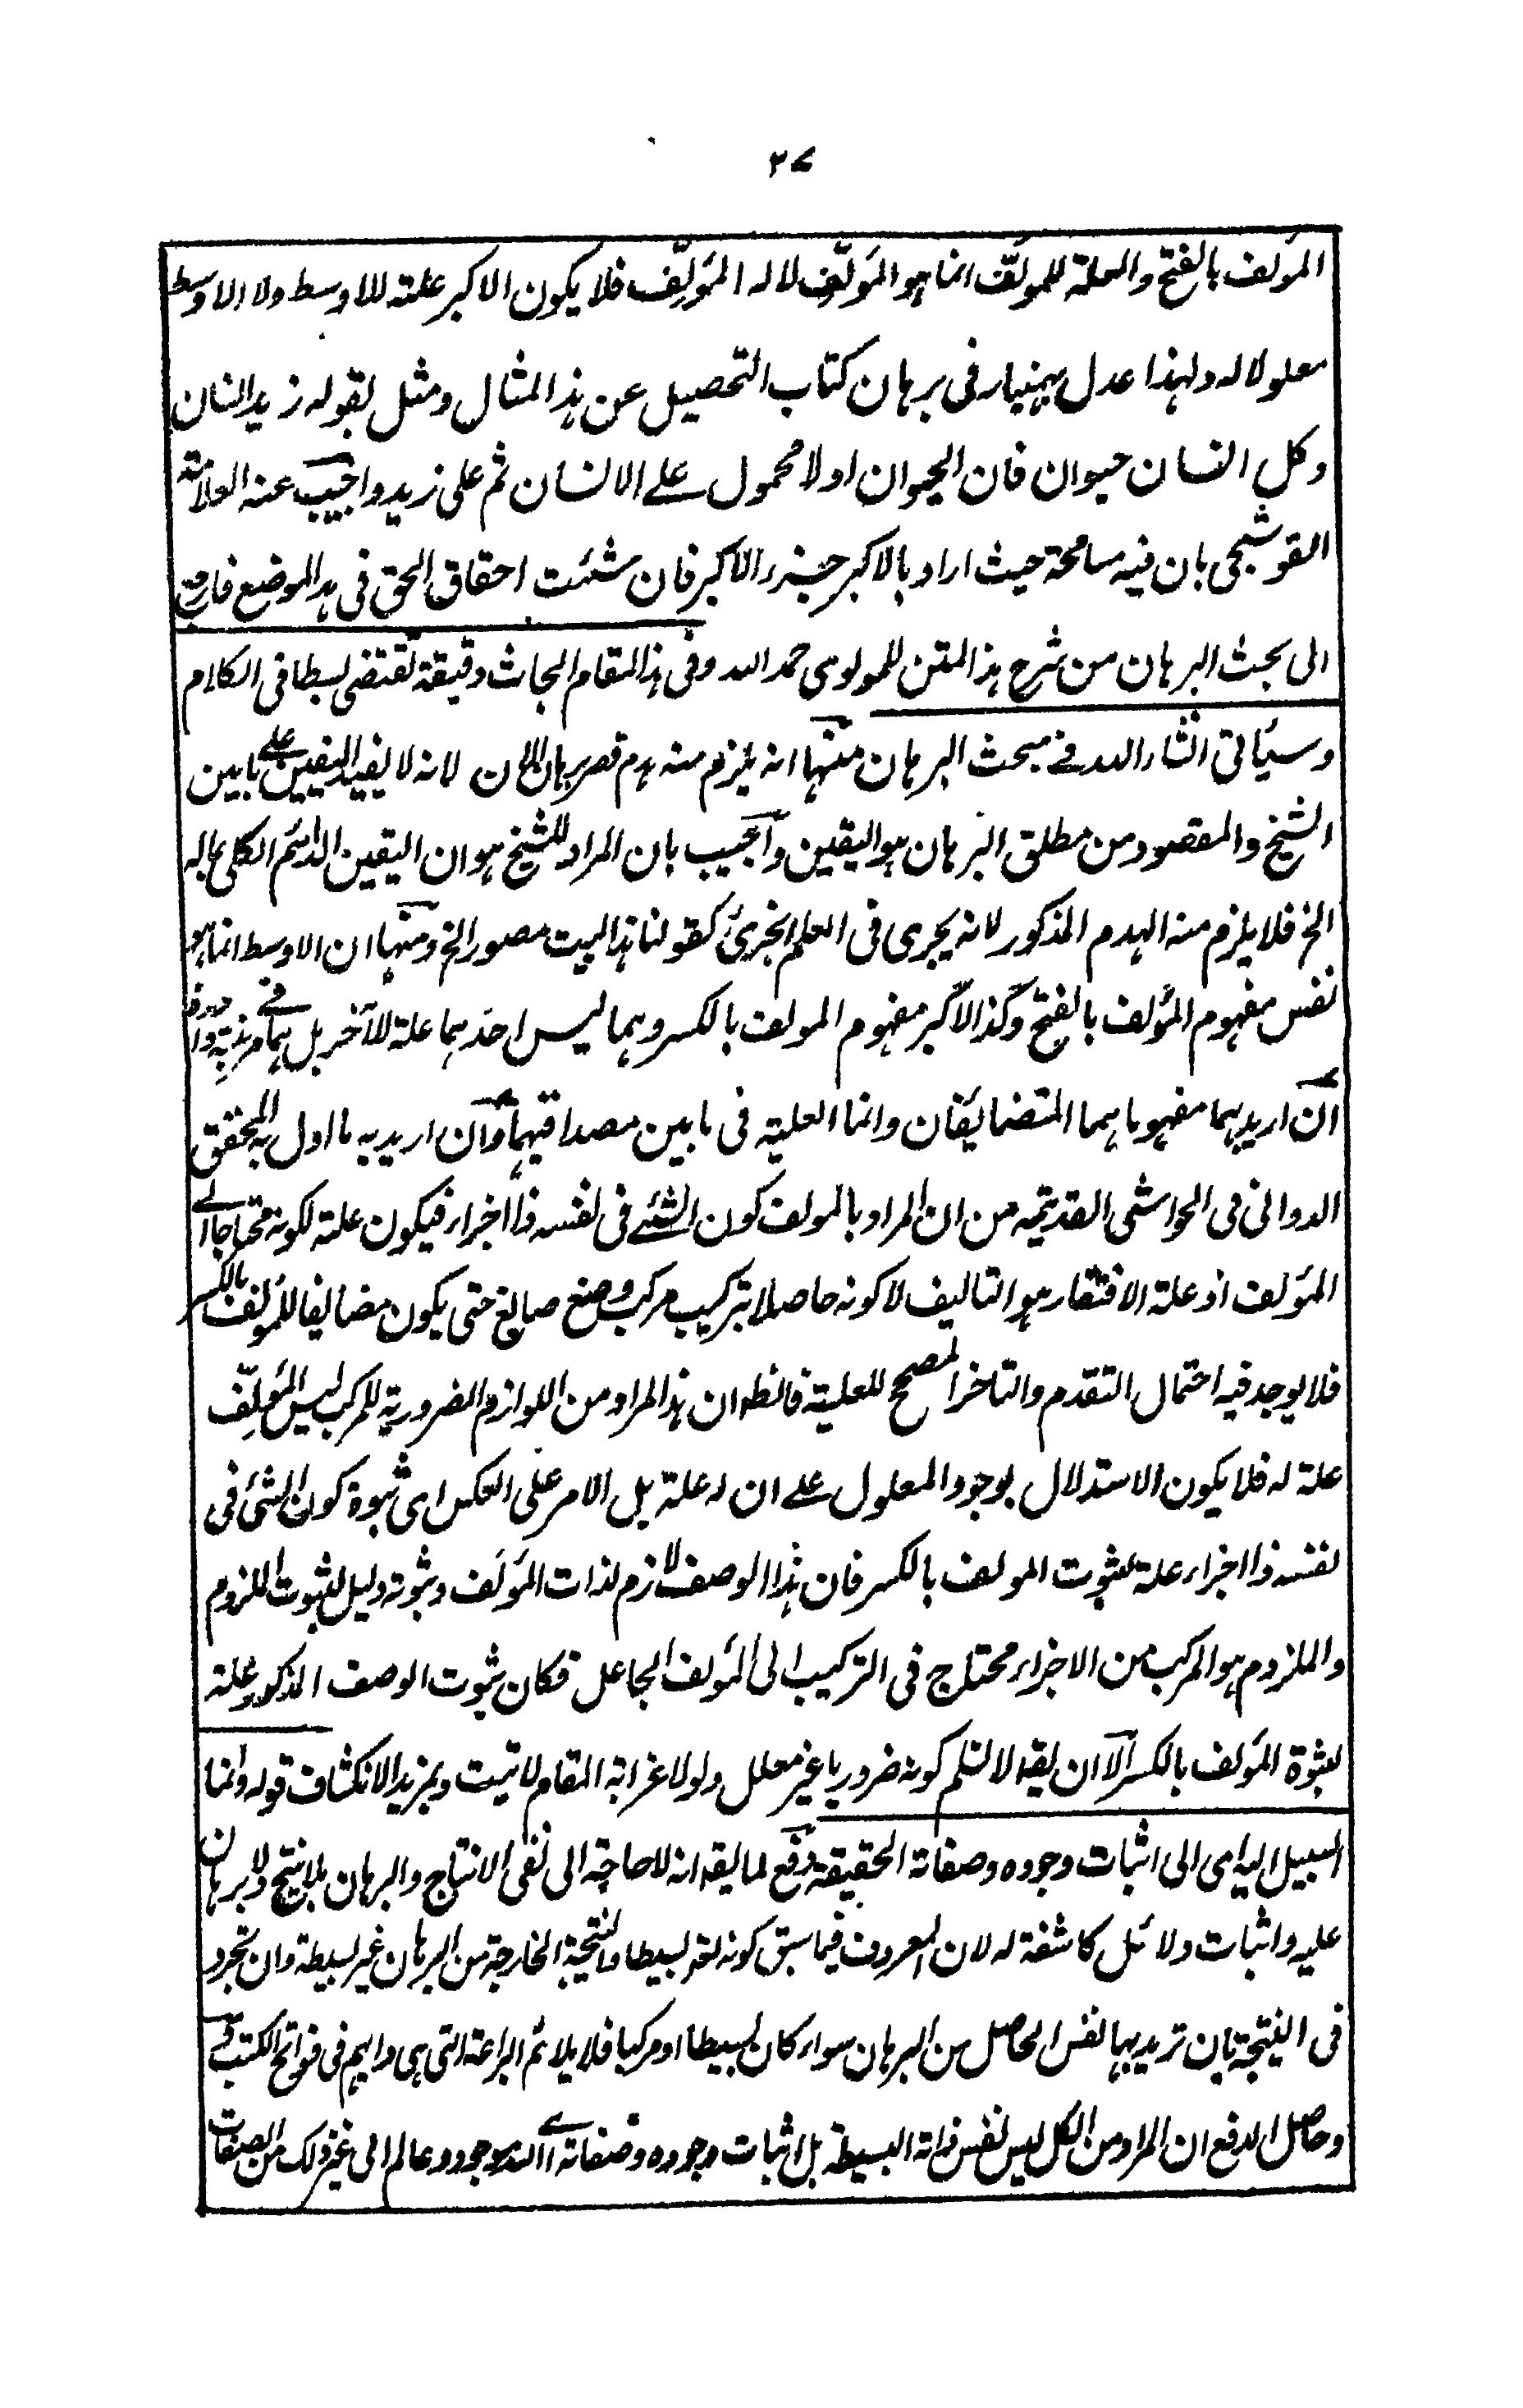 ٢٧
المؤلف بالفتح والعلة للمولَّف انما هو المؤلِّف لا له المؤلِّف فلا يكون الاكبر علته للاوسط ولا الاوسط
معلولا له ولهذا عدل بهمنيار فى برهان كتاب التحصيل عن هذا المثال ومثل بقوله زيد انسان
وكل انسان حيوان فان الحيوان اولا محمول على الانسان ثم على زيد واجيب عنه العلامة
القوشجى بان فيه مسامحة حيث اراد بالاكبر جزء الاكبر فان شئت احقاق الحق فى هذا الموضع فارجع
الى بحث البرهان من شرح هذا المتن للمولوى حمد الله وفى هذا المقام ابحاث دقيقة تقتضى بسطا فى الكلام
وسيأتى انشاء الله فى مبحث البرهان منها انه يلزم منه هدم قصر برهان الان لانه لا يفيد اليقين على ما بين
الشيخ والمقصود من مطلق البرهان هو اليقين واجيب بان المراد للشيخ هو ان اليقين الدائم الكلى بماله
الخ فلا يلزم منه الهدم المذكور لانه يجرى فى العلم الجزئ كقولنا هذا البيت مصور الخ ومنها ان الاوسط انما هو
نفس مفهوم المؤلف بالفتح وكذا الاكبر مفهوم المولف بالكسر وهما ليس احدهما علة للآخر بل هما فى مرتبة واحدة
ان اريد بهما مفهوماهما المتضايفان وانما العلية فى ما بين مصداقيهما وان اريد به ما اول به المحقق
الدوانى فى الحواشى القديمة من ان المراد بالمولف كون الشئ فى نفسه ذا اجزاء فيكون علة لكونه محتاجا الى
المؤلف اذ علة الافتقار هو التاليف لا كونه حاصلا بتركيب مركب وصنع صانع حتى يكون مضايفا للمؤلف بالكسر
فلا يوجد فيه احتمال التقدم والتاخر المصحح للعلية فالظ ان هذا المراد من اللوازم الضرورية للمركب ليس المؤلِّف
علة له فلا يكون الاستدلال بوجود المعلول على ان له علة بل الامر على العكس اى ثبوة كون الشئ فى
نفسه ذا اجزاء علة لثبوت المولف بالكسر فان هذا الوصف لازم لذات المؤلف وثبوته دليل لثبوت الملزوم
والملزوم هو المركب من الاجزاء محتاج فى التركيب الى المؤلف الجاعل فكان ثبوت الوصف المذكور علة
لثبوة المؤلف بالكسر الا ان يقه لا نسلم كونه ضروريا غير معلل ولولا غرابة المقام لاتيت بمزيد الانكشاف قوله وانما
السبيل اليه اى الى اثبات وجوده وصفاته الحقيقة دفع لما يقه انه لا حاجة الى نفى الانتاج والبرهان بلا ينتج ولا برهان
عليه واثبات دلائل كاشفة له لان المعروف فيما سبق كونه تعه بسيطا والنتيجة الخارجة من البرهان غير بسيطة وان تجرد
فى النتيجة بان تريد بها نفس الحاصل من البرهان سواء كان بسيطا او مركبا فلا يلائم البراعة التى هى دابهم فى فواتح الكتب
وحاصل الدفع ان المراد من الكل ليس نفس ذاته البسيطة بل اثبات وجوده وصفاته اى الله موجود وعالم الى غير ذلك من الصفات